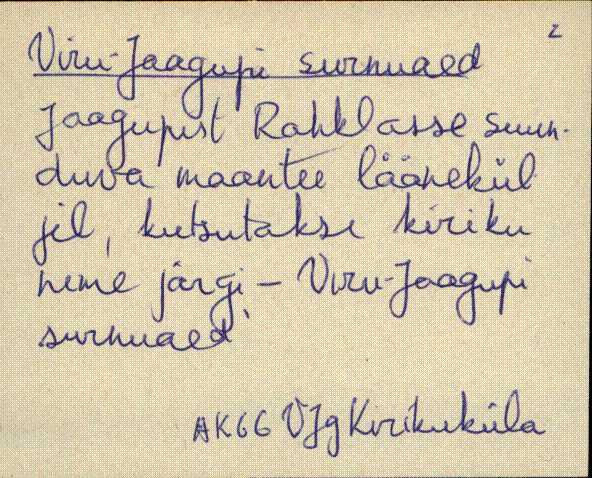 2
Viru-Jaagupi surnuaed
Jaagupist Rahklasse suun-
duva maantee läänekül
jel, kutsutakse kiriku
nime järgi – Viru-Jaagupi
surnuaed
AK66 VJg Kirikuküla